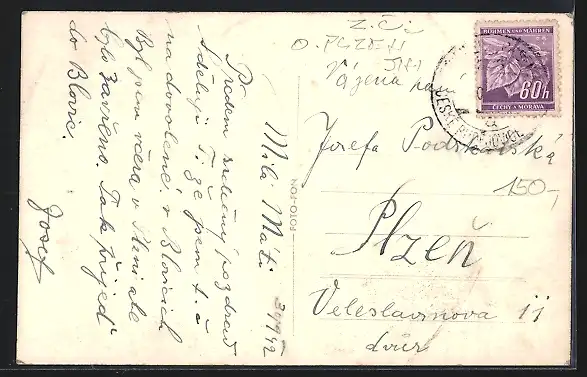 Milá Máti
Předem srdečný pozdrav
Sděluji Ti že jsem t. č.
na dovolené v Blovicích
Byl jsem včera v Plzni ale
bylo zavřeno. Tak přijeď
do Blovic.
Josef
FOTO-FON
Z. Č.
O. PLZEŇ
JIH
Vážená paní
Josefa Podskalská
Plzeň
Veleslavínova 11
dvůr
150,-
BÖHMEN UND MÄHREN
60h
ČECHY A MORAVA